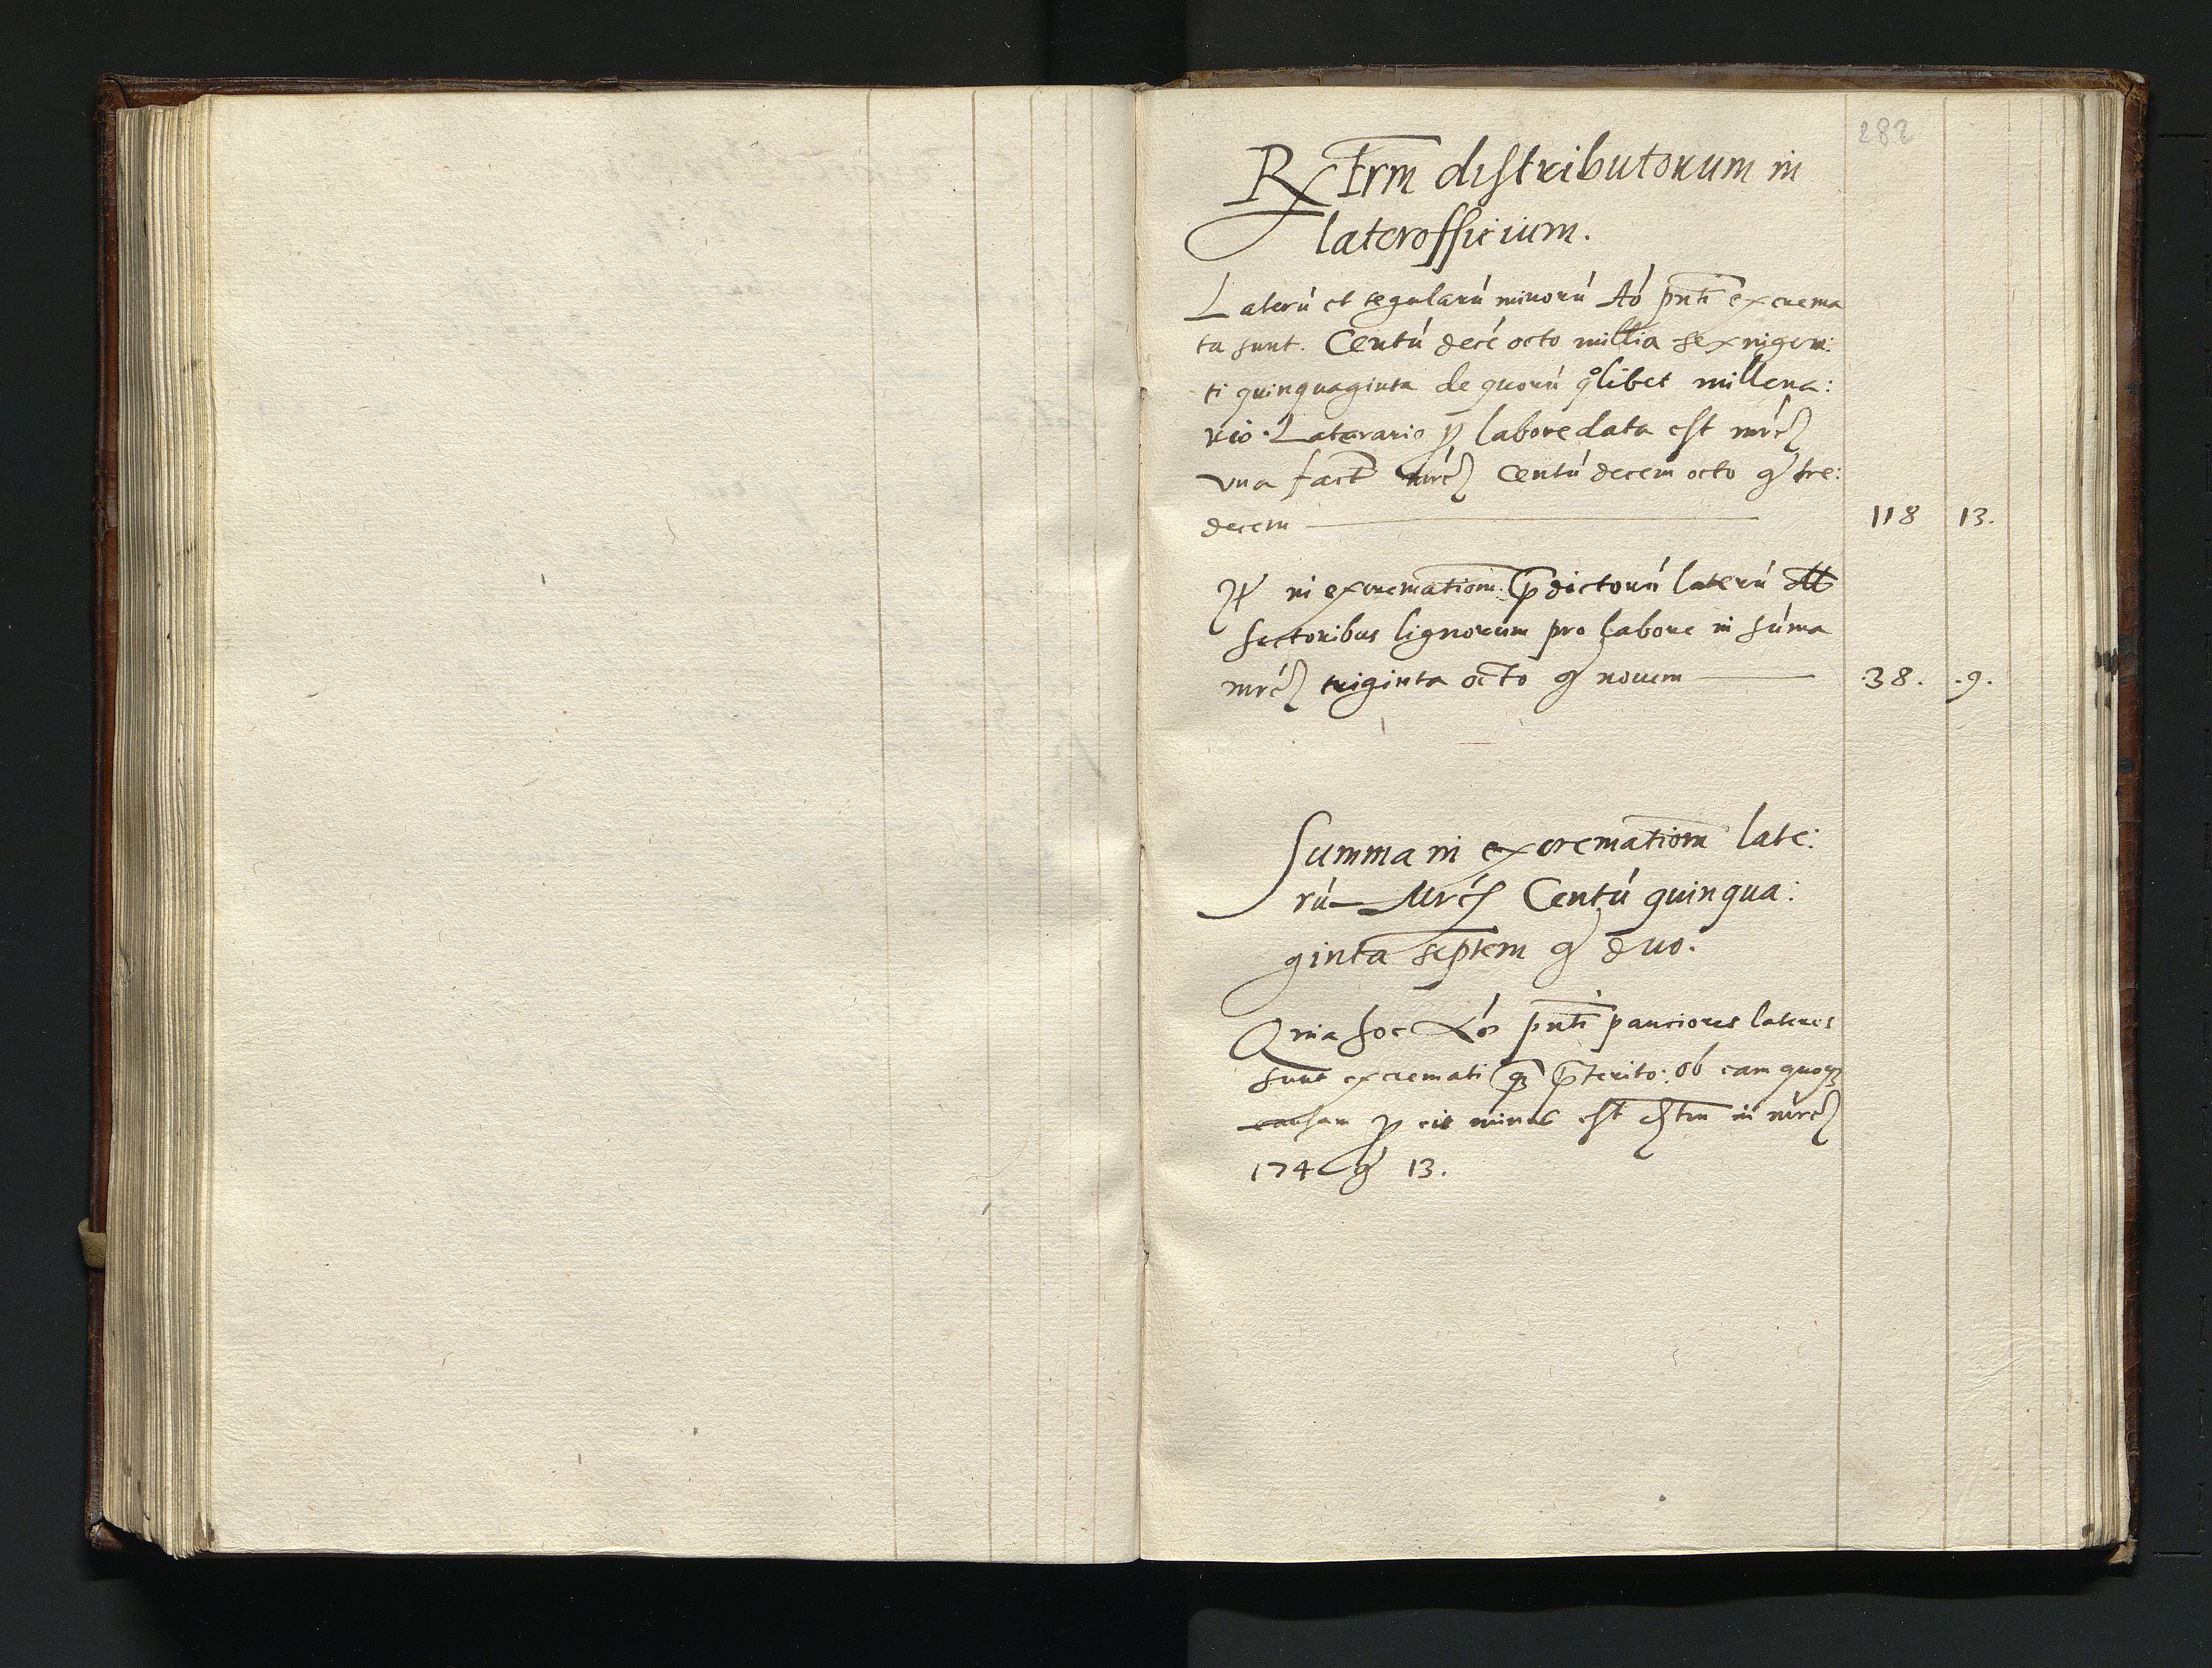 282
Rx Frm distributorum in
laterofficium.
Laterú et tegularú minorú Aó pnti excrema
ta sunt. Centú decé octo millia sexingen:
ti quinquaginta de quorú qolibet millena:
rio. Laterario p labore data est mrc
vna fact mrc Centú decem octo g tre:
decem 118 13.
It in excremationi: pdictorú laterú
sectoribus lignorum pro labore in súma
mrc triginta octo g nouem 38. .9.
Summa in excremationi late:
rú Mrc Centú quinqua:
ginta septem g duo.
Quia hoc Aó pnti pauciores lateres
sunt excremati q pterito: ob eam quoq
causam p eis minus est in mrc
174 g 13.